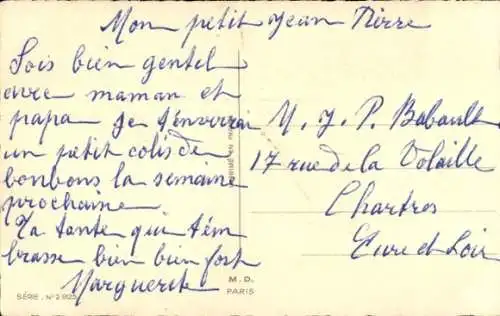 Mon petit Jean Pierre
Sois bien gentil
avec maman et
papa Je t'enverrai
un petit colis de
bonbons la semaine
prochaine
Ta tante qui t'em
brasse bien bien fort
Marguerite
M. J. P. Babault
17 rue de la Volaille
Chartres
Eure et Loir
M. D.
PARIS
SÉRIE. N° 2.925